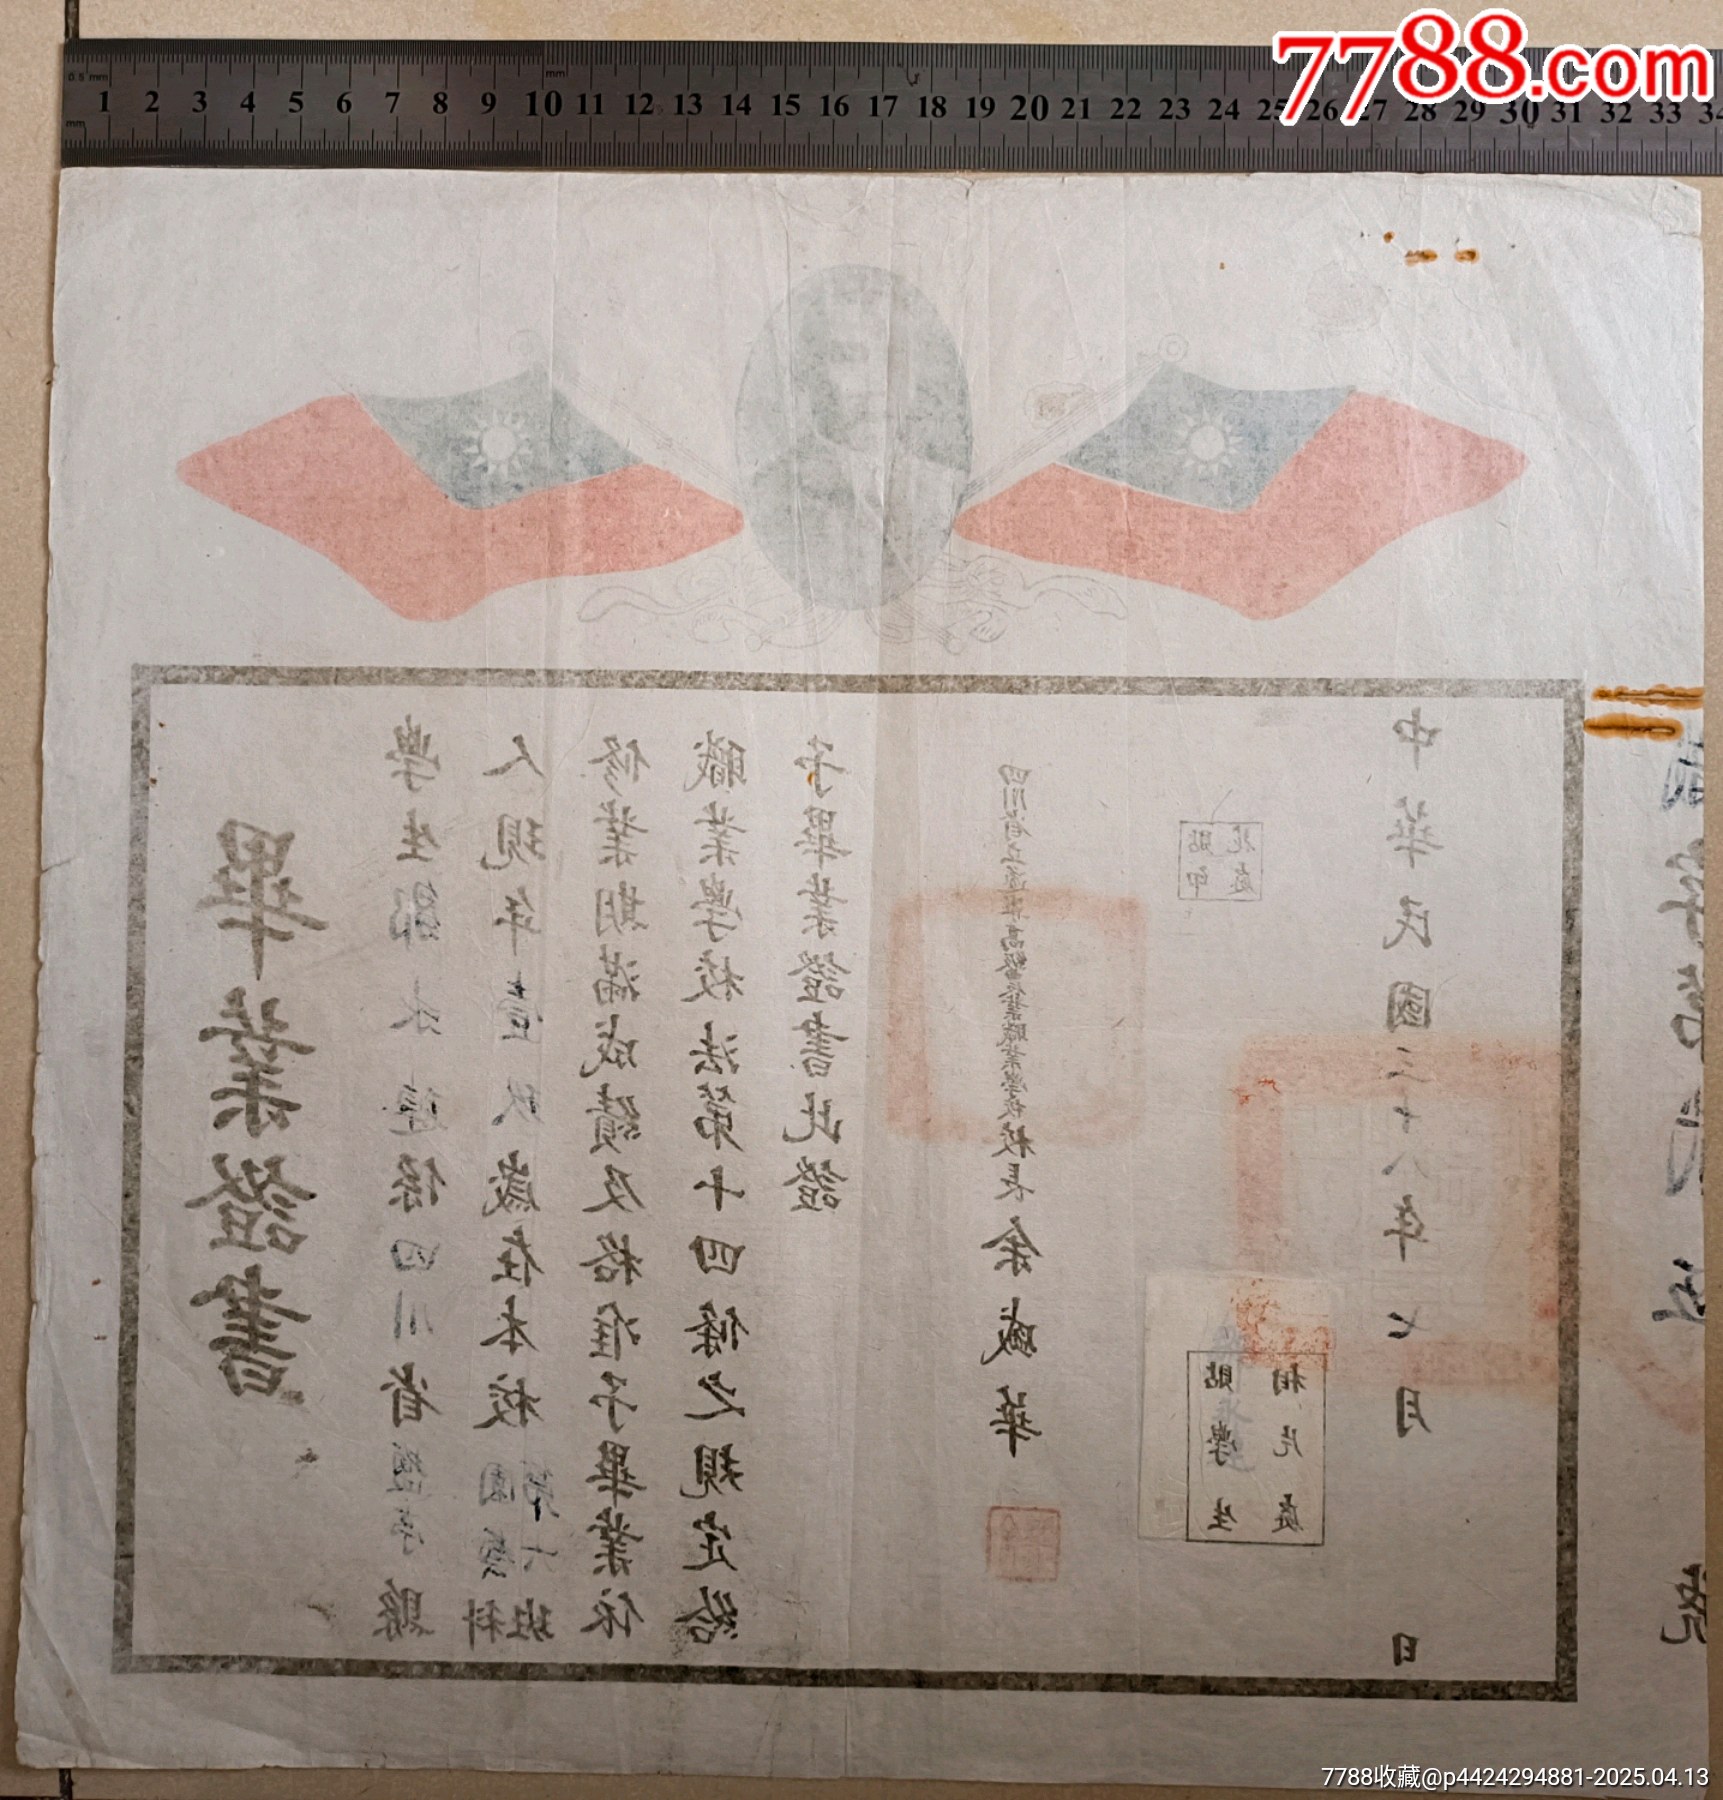 7788.com
0.5mm
mm
mm
1 2 3 4 5 6 7 8 9 10 11 12 13 14 15 16 17 18 19 20 21 22 23 24 25 26 27 28 29 30 31 32 33 34
畢業證書
學生鄧 係四川省 縣
人現年 玖歲在本校 班科
修業期滿成績及格准予畢業依
職業學校法第十四條之規定給
予畢業證書此證
四川省立 高級 職業學校校長余威華
花處貼印
相片處
貼學生
中華民國三十八年七月 日
號
7788收藏@p4424294881-2025.04.13